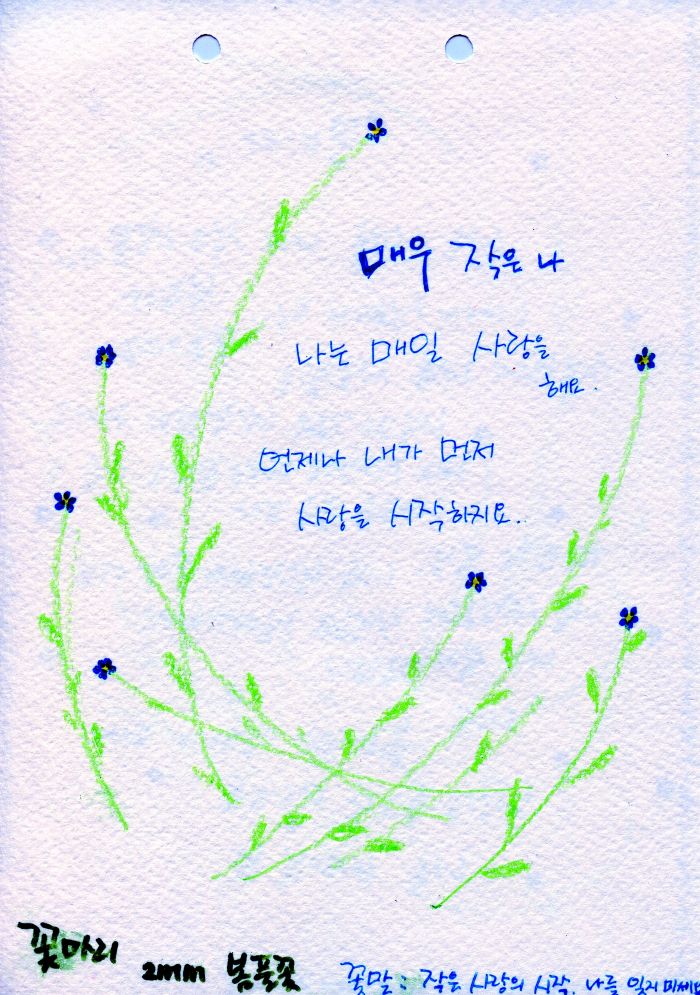 매우 작은 나
나는 매일 사랑을
해요.
언제나 내가 먼저
사랑을 시작하지요.
꽃마리
2mm 봄풀꽃
꽃말 : 작은 사랑의 시작. 나를 잊지 마세요